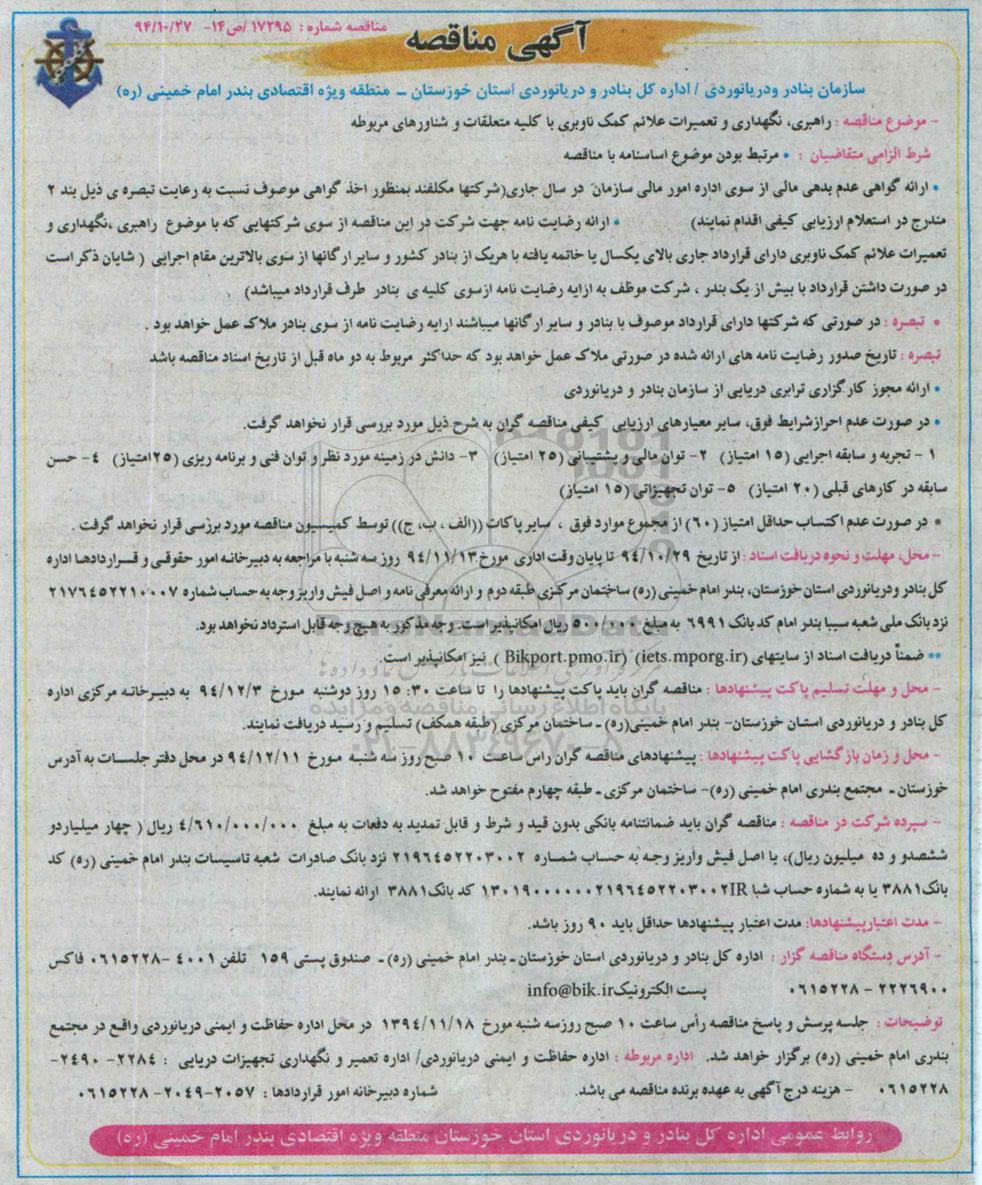 مناقصه شماره : ۱۷۲۹۵/ص۱۴- ۹۴/۱۰/۲۷
آگهی مناقصه
سازمان بنادر ودریانوردی / اداره کل بنادر و دریانوردی استان خوزستان – منطقه ویژه اقتصادی بندر امام خمینی (ره)
- موضوع مناقصه : راهبری، نگهداری و تعمیرات علائم کمک ناوبری با کلیه متعلقات و شناورهای مربوطه
شرط الزامی متقاضیان : • مرتبط بودن موضوع اساسنامه با مناقصه
• ارائه گواهی عدم بدهی مالی از سوی اداره امور مالی سازمان در سال جاری(شرکتها مکلفند بمنظور اخذ گواهی موصوف نسبت به رعایت تبصره ی ذیل بند ۲
مندرج در استعلام ارزیابی کیفی اقدام نمایند) • ارائه رضایت نامه جهت شرکت در این مناقصه از سوی شرکتهایی که با موضوع راهبری ،نگهداری و
تعمیرات علائم کمک ناوبری دارای قرارداد جاری بالای یکسال یا خاتمه یافته با هریک از بنادر کشور و سایر ارگانها از سوی بالاترین مقام اجرایی ( شایان ذکر است
در صورت داشتن قرارداد با بیش از یک بندر ، شرکت موظف به ارایه رضایت نامه ازسوی کلیه ی بنادر طرف قرارداد میباشد)
• تبصره : در صورتی که شرکتها دارای قرارداد موصوف با بنادر و سایر ارگانها میباشند ارایه رضایت نامه از سوی بنادر ملاک عمل خواهد بود .
تبصره : تاریخ صدور رضایت نامه های ارائه شده در صورتی ملاک عمل خواهد بود که حداکثر مربوط به دو ماه قبل از تاریخ اسناد مناقصه باشد
• ارائه مجوز کارگزاری ترابری دریایی از سازمان بنادر و دریانوردی
• در صورت عدم احرازشرایط فوق، سایر معیارهای ارزیابی کیفی مناقصه گران به شرح ذیل مورد بررسی قرار نخواهد گرفت.
۱ - تجربه و سابقه اجرایی (۱۵ امتیاز) ۲- توان مالی و پشتیبانی (۲۵ امتیاز) ۳- دانش در زمینه مورد نظر و توان فنی و برنامه ریزی (۲۵امتیاز) ۴- حسن
سابقه در کارهای قبلی (۲۰ امتیاز) ۵- توان تجهیزاتی (۱۵ امتیاز)
• در صورت عدم اکتساب حداقل امتیاز (۶۰) از مجموع موارد فوق ، سایر پاکات ((الف ، ب، ج)) توسط کمیسیون مناقصه مورد بررسی قرار نخواهد گرفت .
- محل، مهلت و نحوه دریافت اسناد : از تاریخ ۹۴/۱۰/۲۹ تا پایان وقت اداری مورخ ۹۴/۱۱/۱۳ روز سه شنبه با مراجعه به دبیرخانه امور حقوقی و قراردادها اداره
کل بنادر ودریانوردی استان خوزستان، بندر امام خمینی (ره) ساختمان مرکزی طبقه دوم و ارائه معرفی نامه و اصل فیش واریز وجه به حساب شماره ۲۱۷۶۴۵۲۲۱۰۰۰۷
نزد بانک ملی شعبه سیبا بندر امام کد بانک ۶۹۹۱ به مبلغ ۵۰۰/۰۰۰ ریال امکانپذیر است. وجه مذکور به هیچ وجه قابل استرداد نخواهد بود.
•• ضمناً دریافت اسناد از سایتهای (iets.mporg.ir) (Bikport.pmo.ir ) نیز امکانپذیر است.
- محل و مهلت تسلیم پاکت پیشنهادها : مناقصه گران باید پاکت پیشنهادها را تا ساعت ۱۵:۳۰ روز دوشنبه مورخ ۹۴/۱۲/۳ به دبیرخانه مرکزی اداره
کل بنادر و دریانوردی استان خوزستان- بندر امام خمینی(ره) - ساختمان مرکزی (طبقه همکف) تسلیم و رسید دریافت نمایند.
- محل و زمان بازگشایی پاکت پیشنهادها : پیشنهادهای مناقصه گران راس ساعت ۱۰ صبح روز سه شنبه مورخ ۹۴/۱۲/۱۱ در محل دفتر جلسات به آدرس
خوزستان - مجتمع بندری امام خمینی (ره)- ساختمان مرکزی - طبقه چهارم مفتوح خواهد شد.
- سپرده شرکت در مناقصه : مناقصه گران باید ضمانتنامه بانکی بدون قید و شرط و قابل تمدید به دفعات به مبلغ ۴/۶۱۰/۰۰۰/۰۰۰ ریال ( چهار میلیاردو
ششصدو و ده میلیون ریال)، یا اصل فیش واریز وجه به حساب شماره ۲۱۹۶۴۵۲۲۰۳۰۰۲ نزد بانک صادرات شعبه تاسیسات بندر امام خمینی (ره) کد
بانک۳۸۸۱ یا به شماره حساب شبا ۱۳۰۱۹۰۰۰۰۰۰۲۱۹۶۴۵۲۲۰۳۰۰۲IR کد بانک۳۸۸۱ ارائه نمایند.
- مدت اعتبارپیشنهادها: مدت اعتبار پیشنهادها حداقل باید ۹۰ روز باشد.
- آدرس دستگاه مناقصه گزار : اداره کل بنادر و دریانوردی استان خوزستان - بندر امام خمینی (ره) - صندوق پستی ۱۵۹ تلفن ۴۰۰۱ -۰۶۱۵۲۲۸ فاکس
۲۲۲۶۹۰۰ - ۰۶۱۵۲۲۸ پست الکترونیکinfo@bik.ir
توضیحات : جلسه پرسش و پاسخ مناقصه رأس ساعت ۱۰ صبح روزسه شنبه مورخ ۱۳۹۴/۱۱/۱۸ در محل اداره حفاظت و ایمنی دریانوردی واقع در مجتمع
بندری امام خمینی (ره) برگزار خواهد شد. اداره مربوطه : اداره حفاظت و ایمنی دریانوردی/ اداره تعمیر و نگهداری تجهیزات دریایی : ۲۲۸۴- ۲۴۹۰-
۰۶۱۵۲۲۸ - هزینه درج آگهی به عهده برنده مناقصه می باشد. شماره دبیرخانه امور قراردادها : ۲۰۵۷-۲۰۴۹- ۰۶۱۵۲۲۸
روابط عمومی اداره کل بنادر و دریانوردی استان خوزستان منطقه ویژه اقتصادی بندر امام خمینی (ره)
پایگاه اطلاع رسانی مناقصه و مزایده
۰۲۱-۸۸۳۴۹۶۷۰-۵